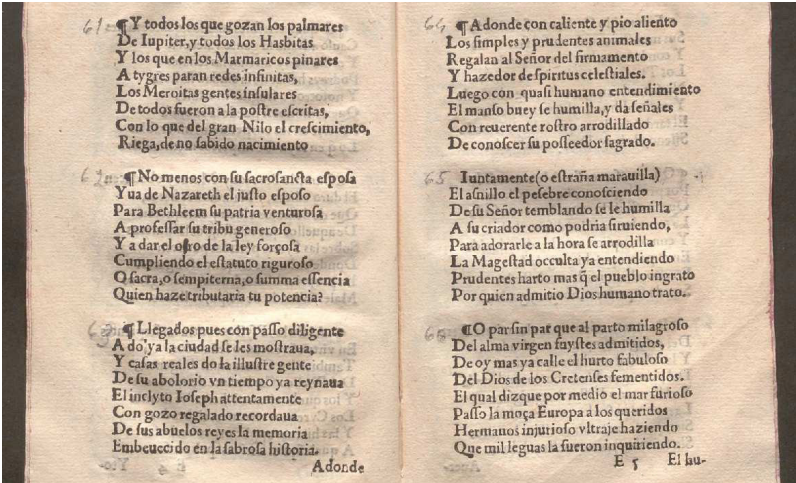 61 ¶ Y todos los que gozan los palmares
De Iupiter, y todos los Hasbitas
Y los que en los Marmaricos pinares
A tygres paran redes infinitas,
Los Meroitas gentes insulares
De todos fueron a la postre escritas,
Con lo que del gran Nilo el crescimiento,
Riega, de no sabido nacimiento
62 ¶ No menos con su sacrosancta esposa
Y ua de Nazareth el justo esposo
Para Bethleem su patria venturosa
A professar su tribu generoso
Y a dar el oro de la ley forçosa
Cumpliendo el estatuto riguroso
O sacra, o sempiterna, o summa essencia
Quien haze tributaria tu potencia?
63 ¶ Llegados pues con passo diligente
A do ya la ciudad se les mostraua,
Y casas reales do la illustre gente
De su abolorio vn tiempo ya reynaua
El inclyto Ioseph attentamente
Con gozo regalado recordaua
De sus abuelos reyes la memoria
Embeuecido en la sabrosa historia.
Adonde
64 ¶ Adonde con caliente y pio aliento
Los simples y prudentes animales
Regalan al Señor del firmamento
Y hazedor de spiritus celestiales.
Luego con quasi humano entendimiento
El manso buey se humilla, y da señales
Con reuerente rostro arrodillado
De conoscer su posseedor sagrado.
65 Iuntamente (o estraña marauilla)
El asnillo el pesebre conosciendo
De su Señor temblando se le humilla
A su criador como podria siruiendo,
Para adorarle a la hora se arrodilla
La Magestad occulta ya entendiendo
Prudentes harto mas q̃ el pueblo ingrato
Por quien admitio Dios humano trato.
66 ¶ O par sin par que al parto milagroso
Del alma virgen fuystes admitidos,
De oy mas ya calle el hurto fabuloso
Del Dios de los Cretenses fementidos.
El qual dizque por medio el mar furioso
Passo la moça Europa a los queridos
Hermanos injurioso vltraje haziendo
Que mil leguas la fueron inquiriendo.
E 5 El hu-